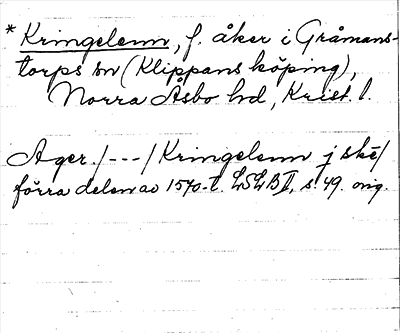 * Kringelenn, f. åker i Gråmans-
torps sn (Klippans köping),
Norra Åsbo hd, Krist. l.
Ager. /---/ Kringelenn j skē/
förra delen av 1570-t. LSLB II, s. 49. orig.